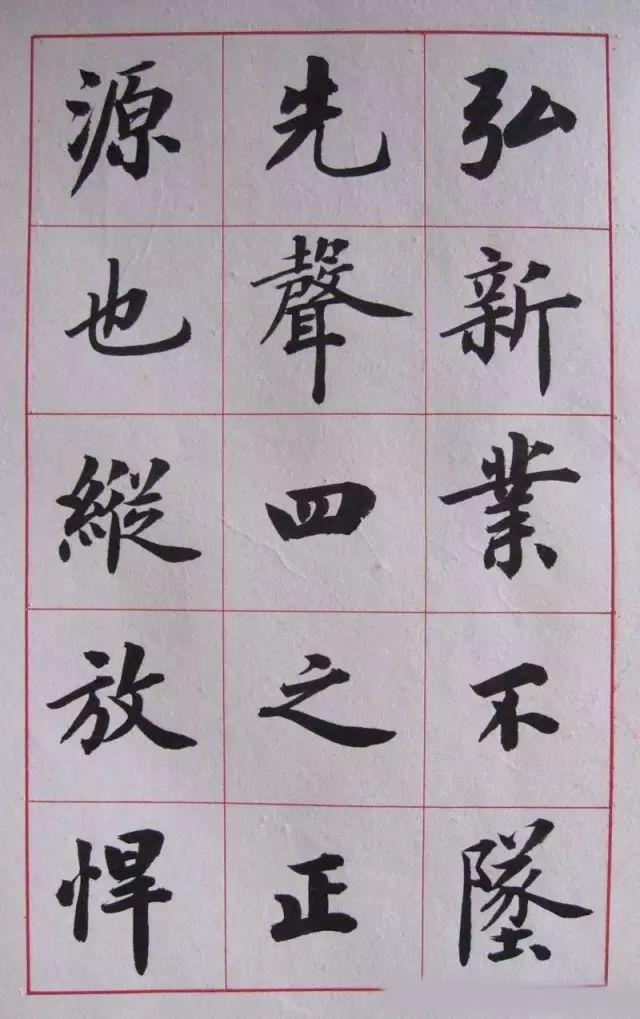 弘新業不墜
先聲四之正
源也縱放悍